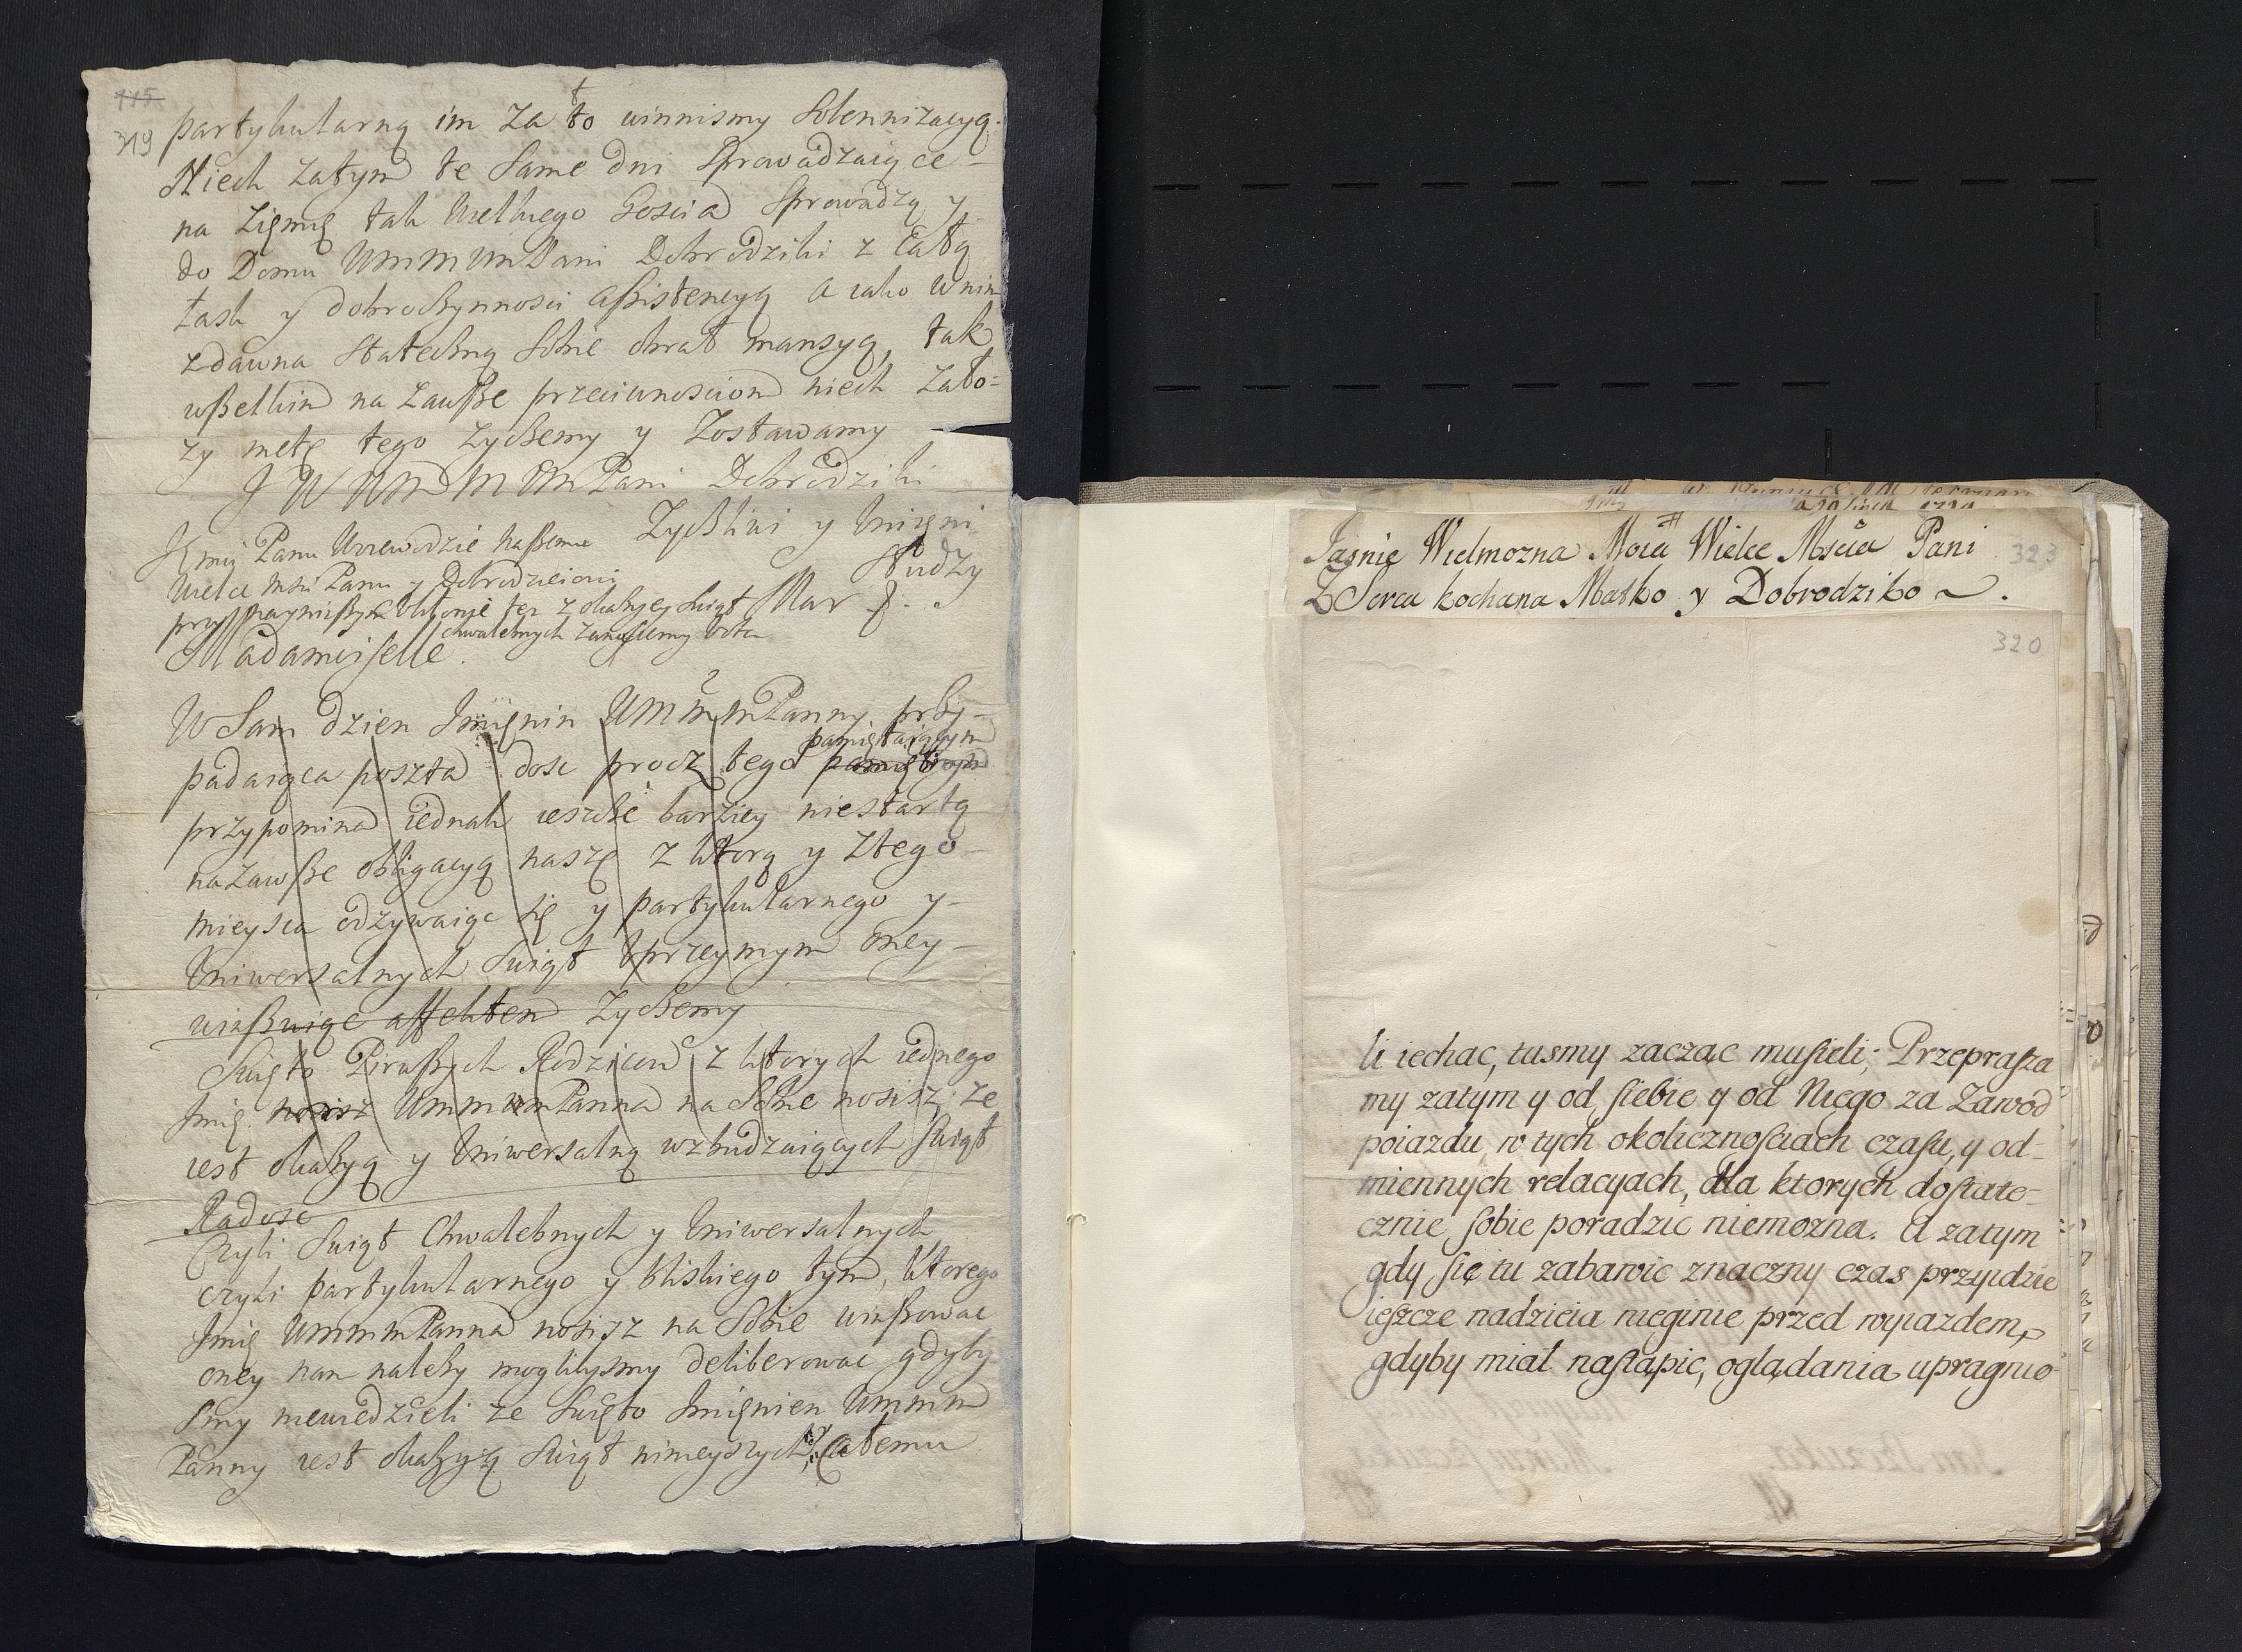 415
319
partykularną im za to winnismy Solennizacyą.
Niech zatym te Same dni Sprowadzaiące
na Zięmię tak Wielkiego Goscia Sprowadzą y
do Domu WMMWMPani Dobrodziki z Całą
łask y dobroczynnosci assistencyą a iako w nim
zdawna Stateczną Sobie obrał mansyą, tak
wszelkim na zawsze przeciwnosciom niech zało=
zy metę tego zyczemy y Zostawamy
J W WM M WMPani Dobrodziki
Zyczliwi y Uniżeni
Słudzy
Jmći Panu Woiewodzie naszemu
Wielce Mści Panu y Dobrodzieiowi
przy nayniższym Ukłonie też z okazyey Swiąt
chwalebnych zanosiemy vota
Mar
Madamoiselle.
W Sam dzien Imięnin WMMMPanny przy=
padaiąca poszta dosc procz tego pamiętnym
pamiętaiącym
przypomina iednak ieszcze barziey niestartą
nazawsze obligacyą naszę z ktorą y Ztego
mieysca odzywaiąc się y partykularnego y
Uniwersalnych Swiąt Uprzeymym oney
winszuiąc affektem zyczemy
Swięto Pirwszych Rodzicow z ktorych iednego
Imię nosisz WMMWMPanna na Sobie nosisz, ze
iest okazyą y Uniwersalną wzbudzaiących Swiąt
Radosc
Czyli Swiąt Chwalebnych y Uniwersalnych
czyli partykularnego y bliskiego tym, ktorego
Imię WMMMPanna nosisz na Sobie winszowac
oney nam należy moglibysmy deliberowac gdyby
smy niewiedzieli ze Swięto Imięnien WMMM
Panny iest okazyą Swiąt ninieyszych, atemu
Jasnie Wielmozna Moia Wielce Mscia Pani
323
Z Serca kochana Matko y Dobrodziko
320
li iechac, tusmy zacząc musieli; Przeprasza
my zatym y od siebie y od Niego za Zawod
poiazdu w tych okolicznosciach czasu, y od-
miennych relacyach, dla ktorych dostate-
cznie sobie poradzic niemozna. A zatym
gdy się tu zabawic znaczny czas przyidzie
ieszcze nadzieia nieginie przed wyiazdem,
gdyby miał nastąpic, oglądania upragnio